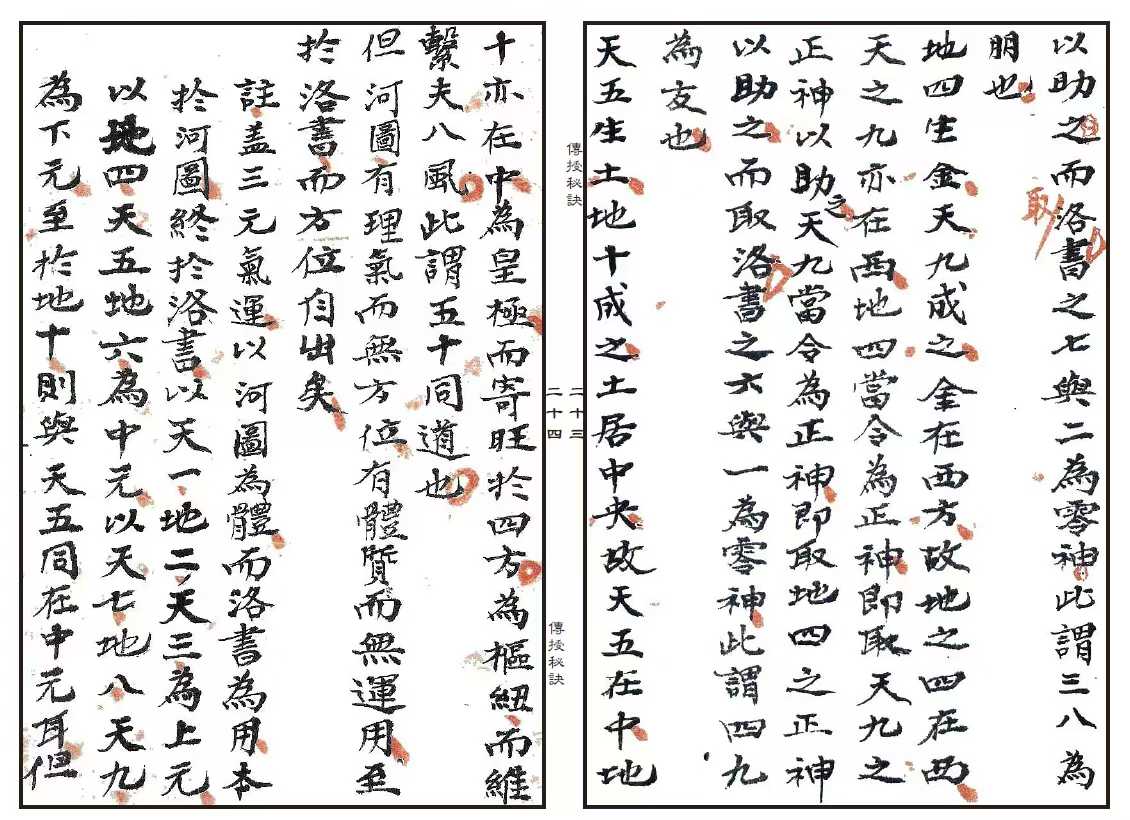 以助之而洛書之七與二為零神此謂三八為
取
朋也
地四生金天九成之金在西方故地之四在西
天之九亦在西地四當令為正神即取天九之
正神以助之天九當令為正神即取地四之正神
以助之而取洛書之六與一為零神此謂四九
為友也
天五生土地十成之土居中央故天五在中地
傳授秘訣
二十三
二十四
傳授秘訣
十亦在中為皇極而寄旺於四方為樞紐而維
繫夫八風此謂五十同道也
但河圖有理氣而無方位有體質而無運用至
於洛書而方位自出矣
註盖三元氣運以河圖為體而洛書為用本
於河圖終於洛書以天一地二天三為上元
以地四天五地六為中元以天七地八天九
為下元至於地十則與天五同在中元耳但